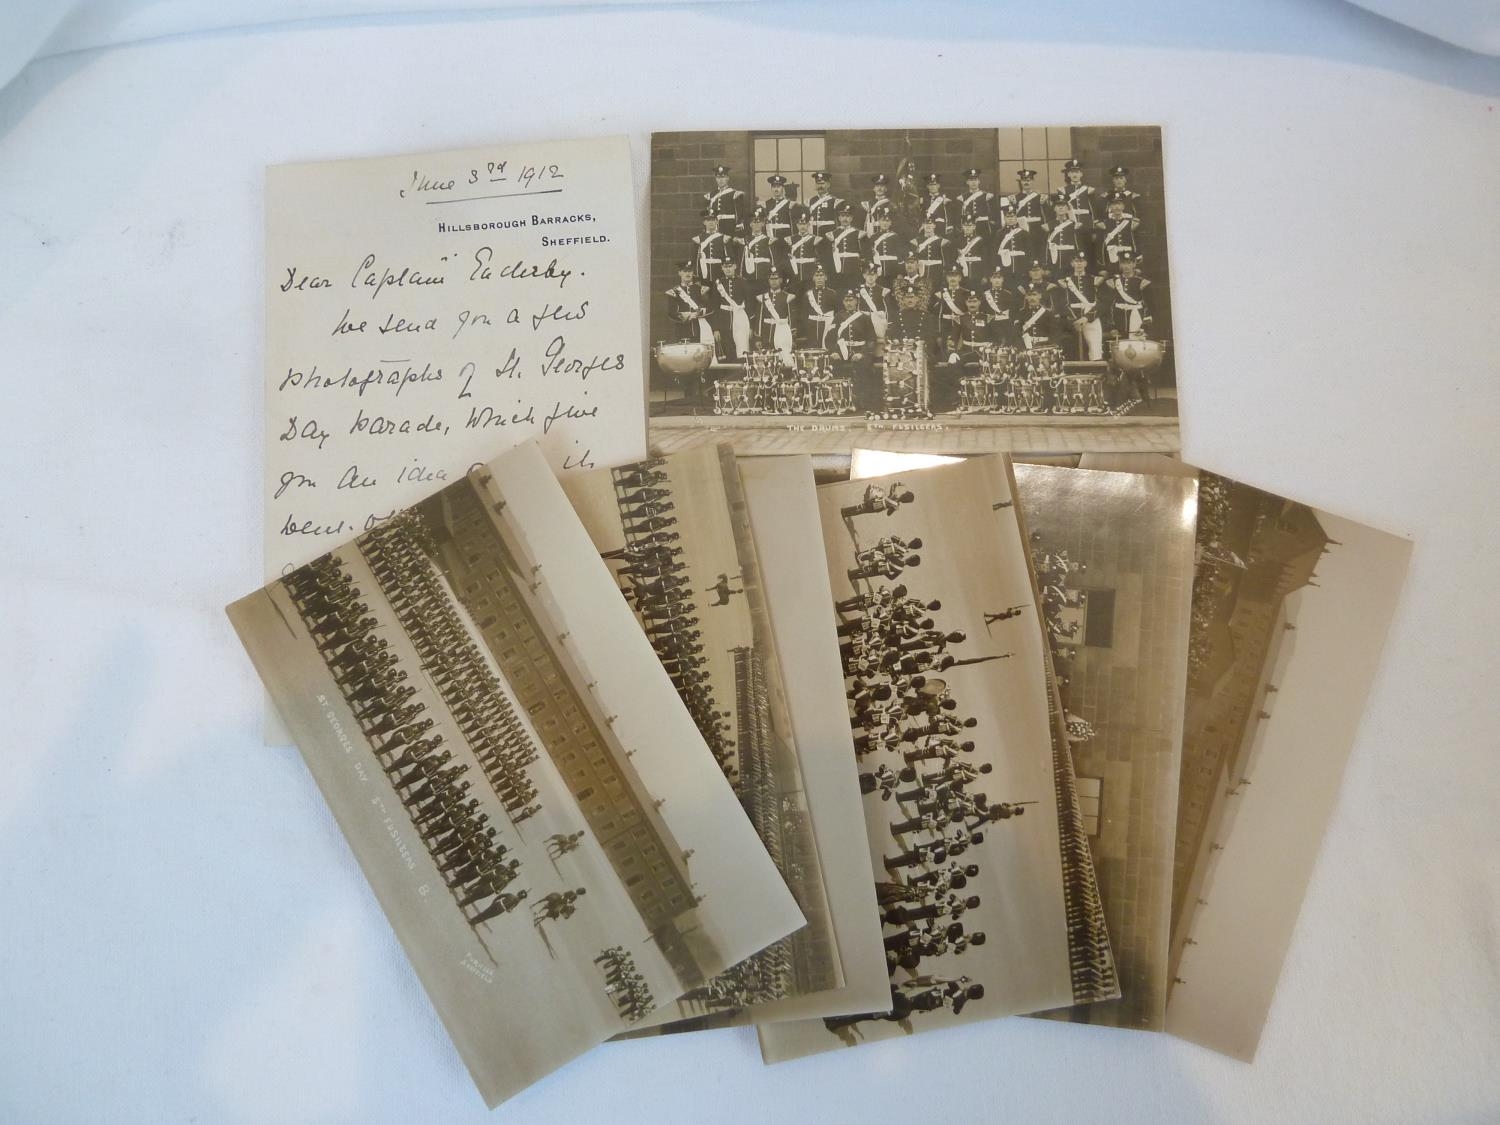 June 3rd 1912
HILLSBOROUGH BARRACKS,
SHEFFIELD.
Dear Captain Enderby.
We send you a few
photographs of St. Georges
Day parade, which give
you an idea it
went.
THE DRUMS. 5TH FUSILEERS.
ST GEORGES DAY 5TH FUSILEERS B.